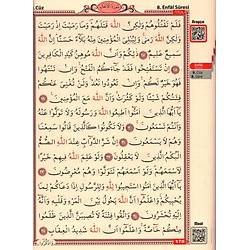 Cüz
8. Enfâl Sûresi
فَلَمْ تَقْتُلُوهُمْ وَلٰكِنَّ اللّٰهَ قَتَلَهُمْ وَمَا رَمَيْتَ اِذْ رَمَيْتَ
وَلٰكِنَّ اللّٰهَ رَمٰى وَلِيُبْلِيَ الْمُؤْمِنِينَ مِنْهُ بَلَاءً حَسَنًا اِنَّ اللّٰهَ
سَمِيعٌ عَلِيمٌ ذٰلِكُمْ وَاَنَّ اللّٰهَ مُوهِنُ كَيْدِ الْكَافِرِينَ
اِنْ تَسْتَفْتِحُوا فَقَدْ جَاءَكُمُ الْفَتْحُ وَاِنْ تَنْتَهُوا
فَهُوَ خَيْرٌ لَكُمْ وَاِنْ تَعُودُوا نَعُدْ وَلَنْ تُغْنِيَ عَنْكُمْ
فِئَتُكُمْ شَيْئًا وَلَوْ كَثُرَتْ وَاَنَّ اللّٰهَ مَعَ الْمُؤْمِنِينَ
يَا اَيُّهَا الَّذِينَ اٰمَنُوا اَطِيعُوا اللّٰهَ وَرَسُولَهُ وَلَا تَوَلَّوْا عَنْهُ
وَاَنْتُمْ تَسْمَعُونَ وَلَا تَكُونُوا كَالَّذِينَ قَالُوا سَمِعْنَا
وَهُمْ لَا يَسْمَعُونَ اِنَّ شَرَّ الدَّوَابِّ عِنْدَ اللّٰهِ الصُّمُّ
الْبُكْمُ الَّذِينَ لَا يَعْقِلُونَ وَلَوْ عَلِمَ اللّٰهُ فِيهِمْ خَيْرًا
لَاَسْمَعَهُمْ وَلَوْ اَسْمَعَهُمْ لَتَوَلَّوْا وَهُمْ مُعْرِضُونَ
يَا اَيُّهَا الَّذِينَ اٰمَنُوا اسْتَجِيبُوا لِلّٰهِ وَلِلرَّسُولِ اِذَا دَعَاكُمْ
لِمَا يُحْيِيكُمْ وَاعْلَمُوا اَنَّ اللّٰهَ يَحُولُ بَيْنَ الْمَرْءِ وَقَلْبِهِ
وَاَنَّهُ اِلَيْهِ تُحْشَرُونَ وَاتَّقُوا فِتْنَةً لَا تُصِيبَنَّ الَّذِينَ
ظَلَمُوا مِنْكُمْ خَاصَّةً وَاعْلَمُوا اَنَّ اللّٰهَ شَدِيدُ الْعِقَابِ
178